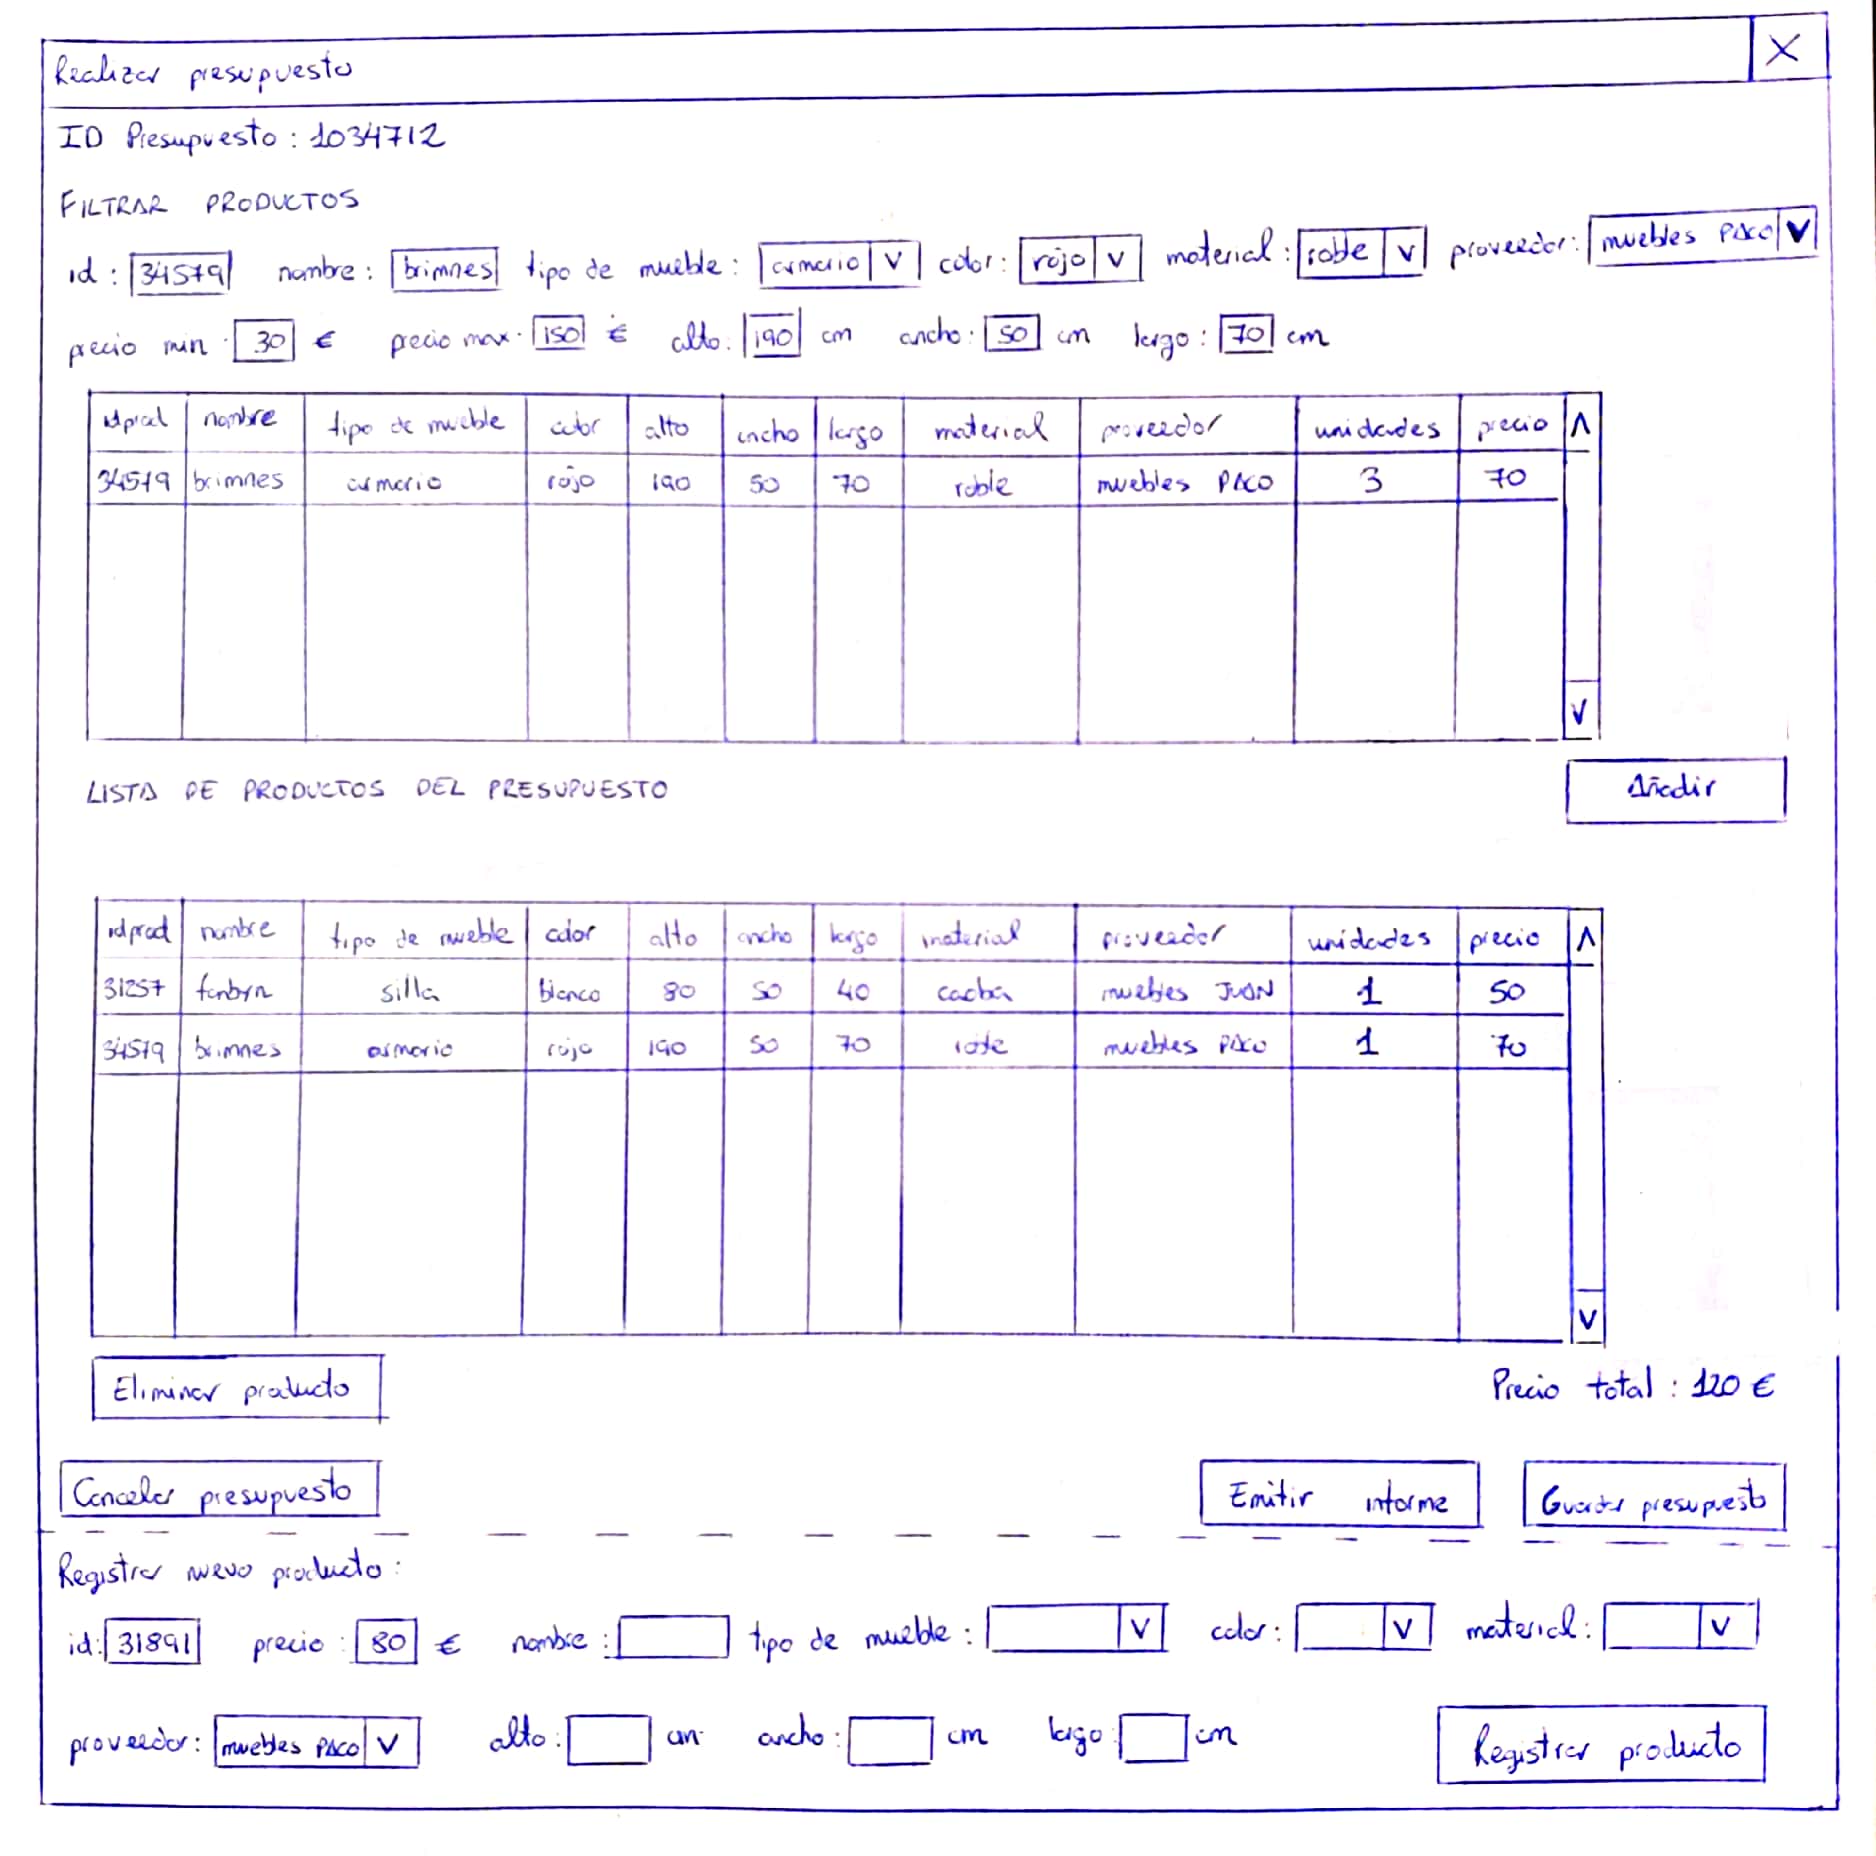 Realizar presupuesto X
ID Presupuesto : 1034712
FILTRAR PRODUCTOS
id : 34579 nombre : brimnes tipo de mueble : armario V color : rojo V material : roble V proveedor : muebles PACO V
precio min. 30 € precio max. 150 € alto: 190 cm ancho: 50 cm largo : 70 cm
idprod nombre tipo de mueble color alto ancho largo material proveedor unidades precio
34579 brimnes armario rojo 190 50 70 roble muebles PACO 3 70
LISTA DE PRODUCTOS DEL PRESUPUESTO Añadir
idprod nombre tipo de mueble color alto ancho largo material proveedor unidades precio
31257 silla blanco 80 50 40 caoba muebles JUAN 1 50
34579 brimnes armario rojo 190 50 70 roble muebles PACO 1 70
Eliminar producto Precio total : 120 €
Cancelar presupuesto Emitir informe Guardar presupuesto
Registrar nuevo producto :
id: 31891 precio : 80 € nombre : tipo de mueble : V color : V material : V
proveedor : muebles PACO V alto : cm ancho : cm largo : cm Registrar producto